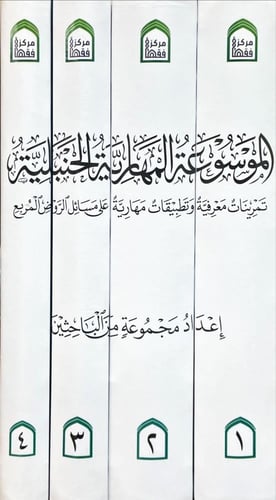 مركز فقهاء مركز فقهاء مركز فقهاء مركز فقهاء
الموسوعة المهارية الحنبلية
تمرينات معرفية وتطبيقات مهارية على مسائل الروض المربع
إعداد مجموعة من الباحثين
١ ٢ ٣ ٤